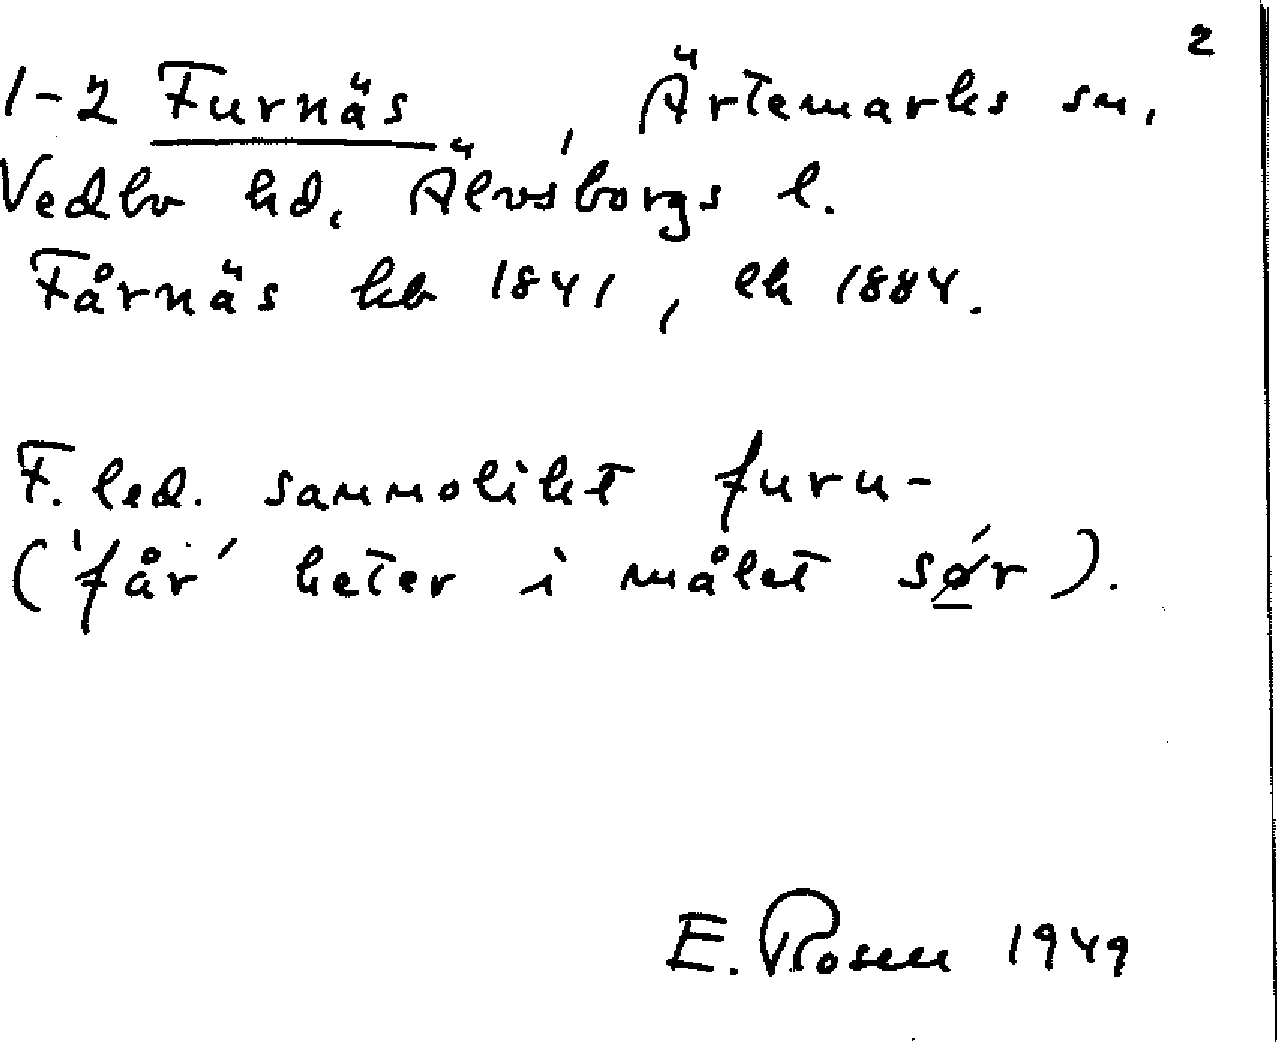 2
1-2 Furnäs, Ärtemarks sn,
Vedbo hd, Älvsborgs l.
Fårnäs kb 1841, ek 1884.
F. led. sannolikt furu-
('får' heter i målet sør).
E. Rosen 1949